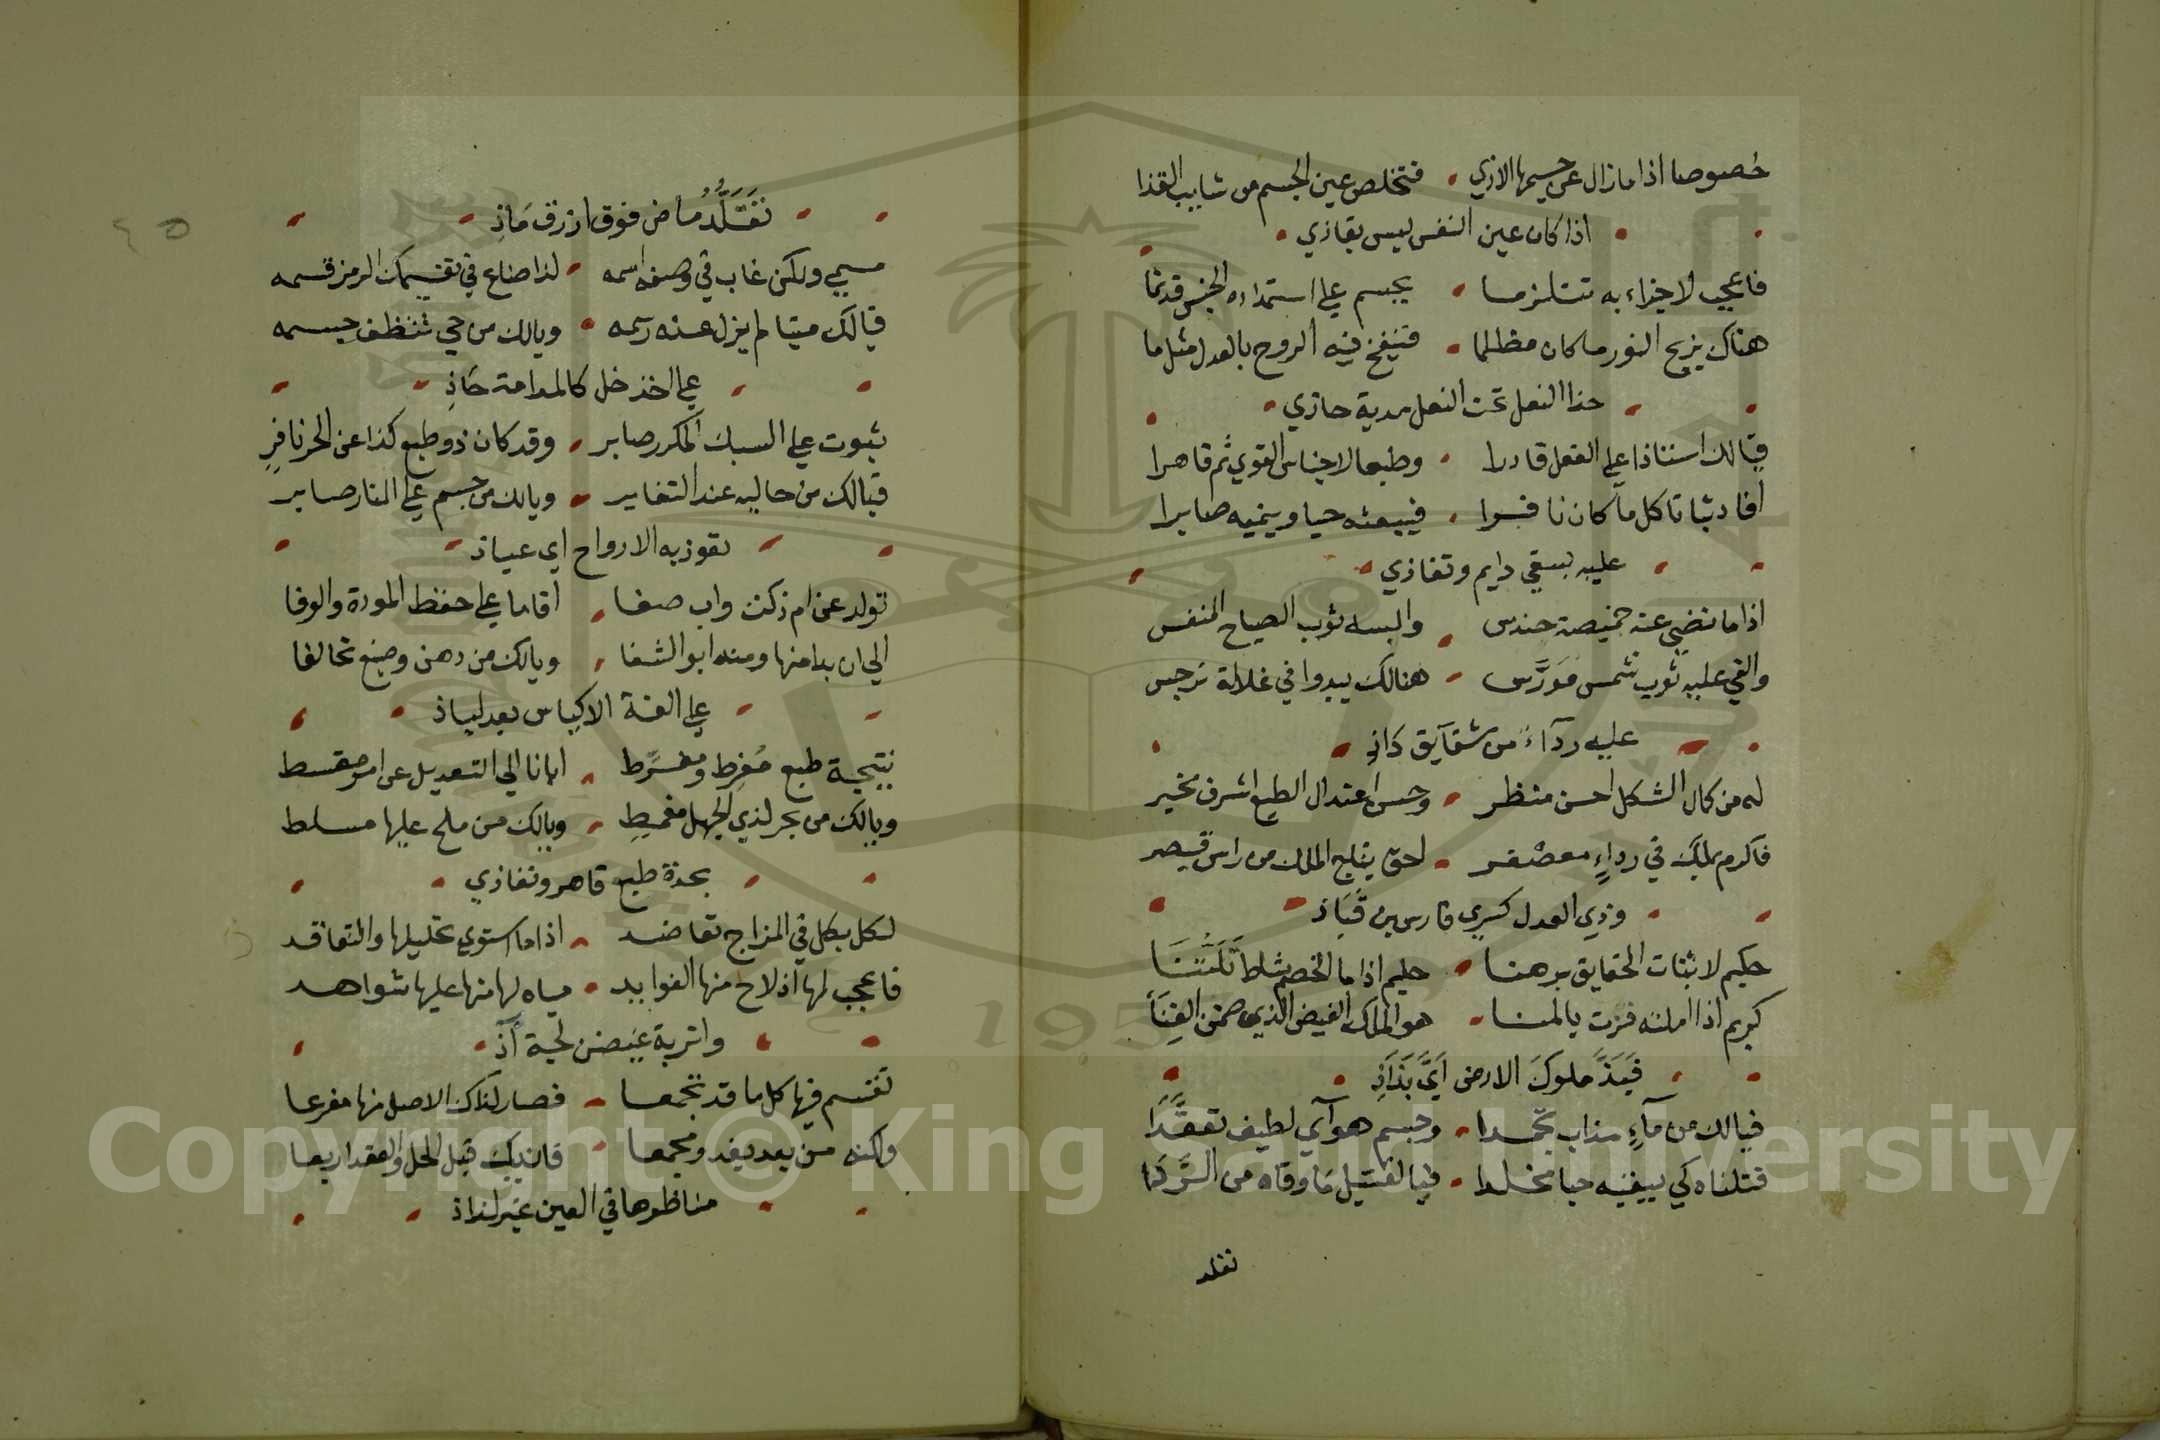 خصوصا اذا ما زال عن جسمها الاذي فتخلص عين الجسم من شايب القذا
اذا كان عين النفس ليس بقاذي
فاعجب لاجزاء به تتلزما بجسم علي استمداده الجنس قد نما
هناك يزيح النور ما كان مظلما فتنفخ فيه الروح بالعدل مثل ما
حذا النعل تحت النعل مدية حاذي
فيالك استاذا علي الفعل قادرا وطبعا لاجناس القوي ثم قاهرا
افاد ثباتا كل ما كان نافرا فيبعثه حيا وينميه صابرا
عليه بسقي دايم وتغاذي
اذا ما نضي عنه خميصة حندس والبسه ثوب الصباح المنفس
والقي عليه ثوب شمس مورس هنالك يبدوا في غلالة نرجس
عليه رداء من شقايق داذ
له من كمال الشكل احسن منظر وحسن اعتدال الطبع اشرف مخبر
فاكرم بملك في رداء معصفر لحق بتاج الملك من راس قيصر
وذي العدل كسري فارس بن قباذ
حكيم لاثبات الحقايق برهنا حليم اذا ما الخصم شاط تلبثنا
كريم اذا املته فزت بالمنا هو الملك الفيض الذي ضمن الغنا
فبذ ملوك الارض اي بذاذ
فيالك من ماء مذاب تجمدا وجسم هوآي لطيف تعقدا
قتلناه كي يبقيه حيا مخلدا فيا لقتيل ما وقاه من الردا
تقلد
تقلد ماض فوق ازرق ماذ
مسمي ولكن غاب في وصفه اسمه لذا ضاع في تقسيمك الرمز قسمه
فيالك ميتا لم يزل عنه رسمه ويالك من حي تنظف جسمه
علي اخذ خل كالمدامة حاذ
بثبوت علي السبك المكرر صابر وقد كان ذو طبع كذا عن الحر نافر
فيالك من حاليه عند التغاير ويالك من جسم علي النار صابر
تعوذ به الارواح اي عياذ
تولد عن ام زكت واب صفا اقاما علي حفظ المودة والوفا
الي ان بدا منها ومنه ابو الشفا ويالك من دهن وصبغ تحالفا
علي الفة الاكياس بعد لياذ
نتيجة طبع مفرط ومفرط ابانا الي التعديل عن امر مقسط
ويالك من بحر لذي الجهل مغمط ويالك من ملح عليها مسلط
بحدة طبع قاهر وتغاذي
لكل بكل في المزاج تعاضد اذا ما استوي تحليلها والتعاقد
فاعجب لها اذ لاح منها الفوايد مياه لها منها عليها شواهد
واتربة غيضن لجة آذ
تقسم فيها كل ما قد تجمعا فصار لذاك الاصل منها مفرعا
ولكنه من بعد يغد ومجمعا فانبيك قبل الحل والعقد اربعا
مناظرها في العين غير لذاذ
Copyright © King Saud University
1957